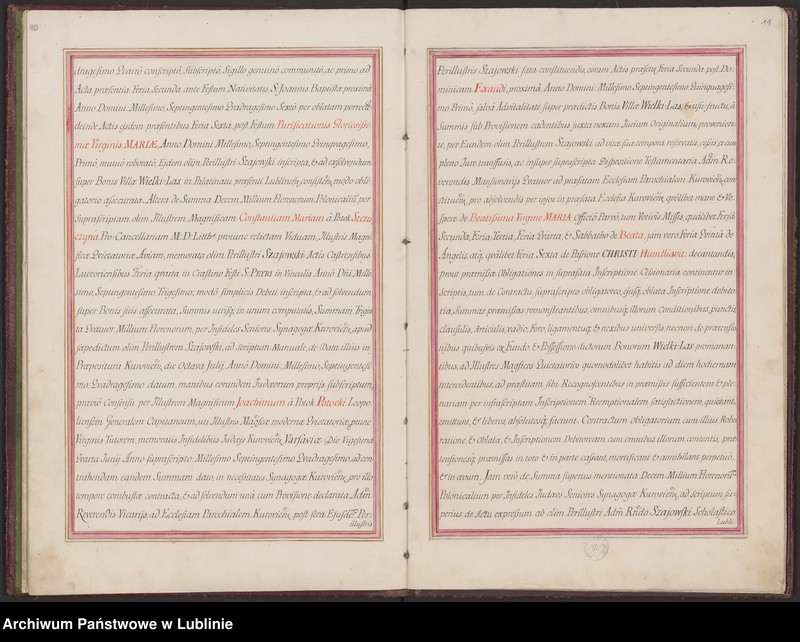 10
dragesimo Quartò conscriptò, Subscriptò, Sigillo genuinò communitò, ac primo ad
Acta præsentia Feria Secunda ante Festum Nativitatis, S. Joannis Baptistæ proximâ
Anno Domini Millesimo, Septingentesimo Quadragesimo Sextò per oblatam porrectô
deinde Actis ejsdem præsentibus Feria Sexta, post Festum Purificationis Gloriosissi-
mæ Virginis MARIÆ, Anno Domini Millesimo, Septingentesimo Quinquagesimo,
Primò, mutuò roboratô, Ejdem olim Perillustri Szajowski inscripta, & ad exsolvendum
super Bonis Villæ Wielki-Las, in Palatinatu præsenti Lublinen: consisten: modo obli-
gatorio assecurata. Altera de Summa Decem Millium Florenorum Polonicaliũ per
Suprascriptam olim Illustrem Magnificam Constantiam Mariam à Potok Szczu
czyna Pro-Cancellariam M: D: Litthæ protunc relictam Viduam, Illustris Magni
ficæ Quietatoria Aviam, memorato olim Perillustri Szajowski Actis Castrensibus
Lauceoriensibus Feria quarta in Crastino Festi S. PETRI in Vincula Annô Dñi Mille
simo, Septingentesimo, Trigesimo; modô simplicis Debiti inscripta, & ad solvendum
super Bonis suis assecurata, Summis utrisq; in unum computatis, Summam Trigin
ta Quatuor Millium Florenorum, per Infideles Seniores Synagogæ Kurovien: apud
sæpedictum olim Perillustrem Szajowski, ad Scriptum Manuale, de Data illius in
Præpositura Kurovien: die Octava Julij Annô Domini Millesimo, Septingentesi
mo, Quadragesimo datum, manibus eorundem Judæorum proprijs subscriptum,
præviô Consensu per Illustrem Magnificum Joachimum à Potok Potocki Leopo-
liensem Generalem Capitaneum, uti Illustris Magficæ modernæ Quietatoriæ protunc
Virginis Tutorem, memoratis Infidelibus Judæis Kurovien: Varsaviæ Die Vigesima
Quarta Junij Anno suprascripto Millesimo Septingentesimo Quadragesimo, ad con
trahendam eandem Summam dato, in necessitates Synagogæ Kurovien: pro illo
tempore combustæ contracta, & ad solvendum unà cum Provisione declarata Adm
Reverendis Vicarijs, ad Ecclesiam Parochialem Kurovien: post fata Ejusdem Per-
illustris
11
Perillustris Szajowski fata constituendis, coram Actis præsentibus Feria Secunda post Do-
minicam Exaudi, proximâ, Anno Domini Millesimo Septingentesimo Quinquagesi-
mo Primò, salvâ Advitalitate super prædictis Bonis Villæ Wielki-Las, & usu-fructu, à
Summis sub Provisionem cadentibus juxta nexum Jurium Originalium, provenien-
te, per Eundem olim Perillustrem Szajowski ad vitæ suæ tempora reservata, cessa, et cum
pleno Jure transfusa, ac insuper supuscripta Dispositione Testamentaria Adm Re-
verendis Mansionarijs Quatuor ad præfatam Ecclesiam Parochialem Kurovien: con
stituen: pro absolvendis per ipsos in præfata Ecclesia Kurovien: quolibet mane & Ve-
spere de Beatissima Virgine MARIA Officiô Parvô, tum Votivis Missis, qualibet Feria
Secunda, Feria Tertia, Feria Quarta, & Sabbatho de Beata. jam verò Feria Quinta de
Angelis, atq; qualibet Feria Sexta de Passione CHRISTI Humiliavit: decantandis,
prout præmissæ Obligationes in suprafata Inscriptione Cessionaria continentur in
Scriptis, tum de Contractu suprascripto obligatoreo, ejusq; oblata Inscriptione debito-
ria, Summas præmissas remonstrantibus, omnibusq; illorum Conditionibus, punctis
clausulis, Articulis, vadio, Foro, ligamentisq; & nexibus universis necnon de prætensio
nibus quibusvis ex Fundo & Possessione dictorum Bonorum Wielki-Las promanan-
tibus, ad Illustres Magficos Quietatorios quomodolibet habitis ad diem hodiernam
intercedentibus, ad præstitam sibi Recognoscentibus in præmissis sufficientem & ple-
nariam per infrascriptam Inscriptionem Reemptionalem satisfactionem, quietant,
emittunt, & liberos, absolutosq; faciunt. Contractum obligatorium cum illius Robo
ratione, & Oblata, & Inscriptionem Debitoream cum omnibus illorum contentis, præ
tensionesq; præmissas in toto & in parte cassant, mortificant & annihilant perpetuò,
& in ævum. Jam verò de Summa superius mentionata Decem Millium Florenorũ
Polonicalium per Infideles Judæos Seniores Synagogæ Kurovien: ad Scriptum su-
perius de Actu expressum ab olim Perillustri Adm Rndo Szajowski Scholastico
Lubli-
Archiwum Państwowe w Lublinie